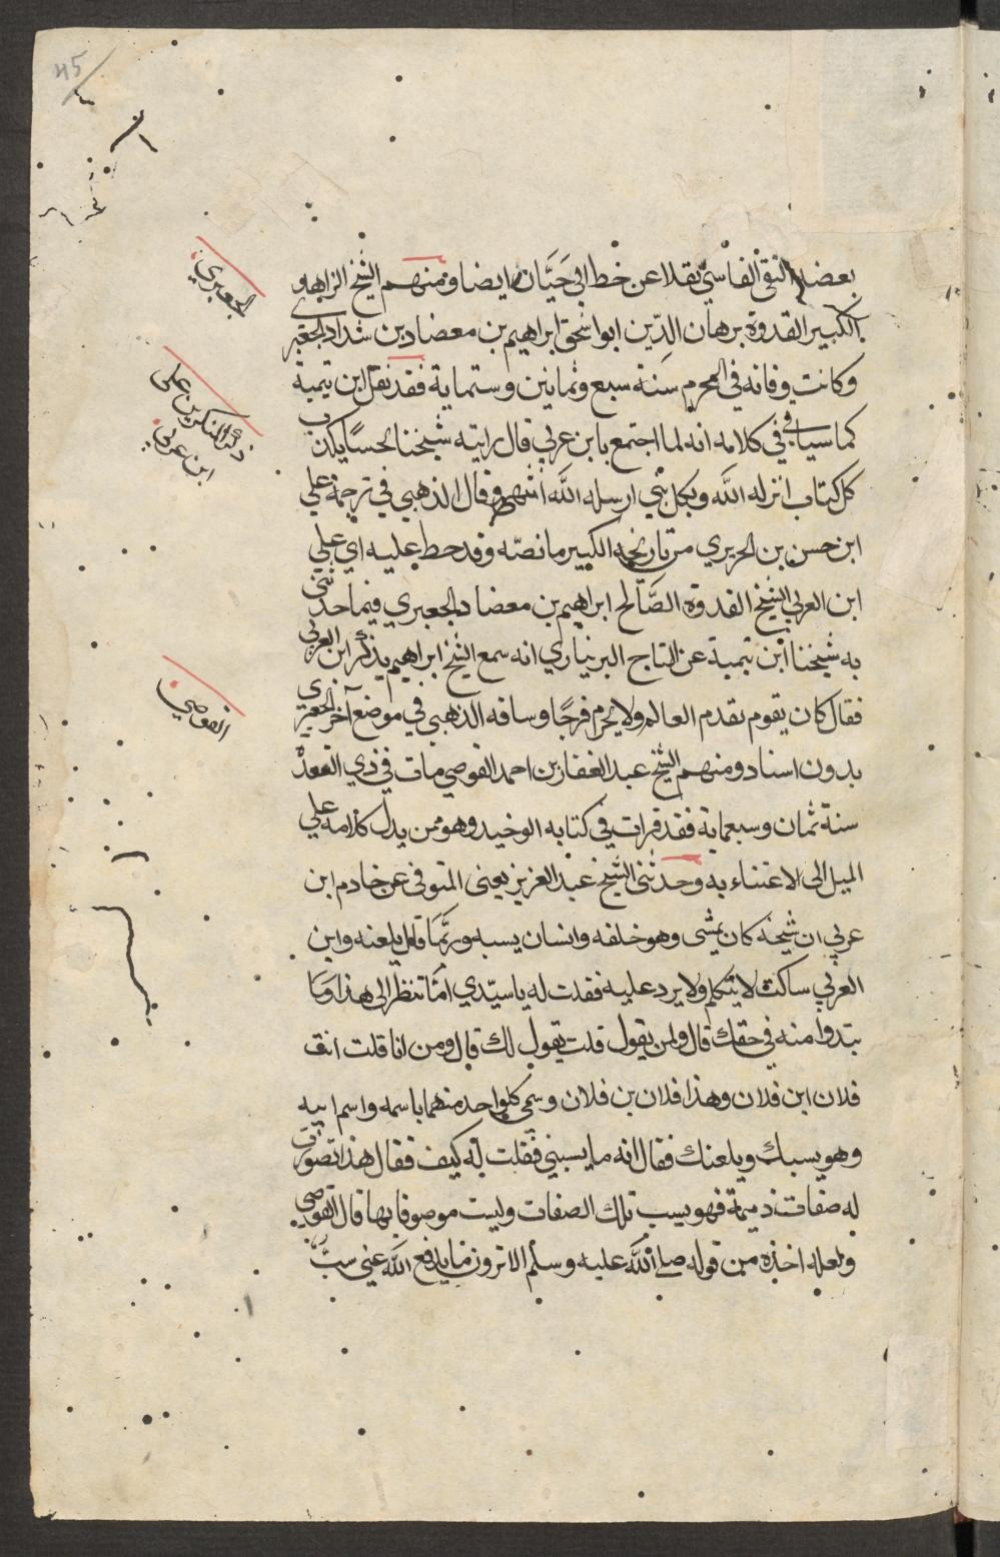 45
الجعبري
ذكر المنكرين على
ابن عربي
القوصي
بعضه التقي الفاسي نقلا عن خط ابي حيّان ايضا ومنهم الشيخ الزاهد
الكبير القدوة برهان الدين ابو اسحق ابراهيم بن معضاد بن شداد الجعبري
وكانت وفاته في المحرم سنة سبع وثمانين وستماية فقد نقل ابن تيمية
كما سياتي في كلامه انه لما اجتمع بابن عربي قال رايته شيخنا نحسًا يكذب
كل كتاب انزله الله وبكل نبي ارسله الله انتهى وقال الذهبي في ترجمة علي
ابن حسن بن الحريري من تاريخه الكبير ما نصّه وقد حط عليه اي علي
ابن العربي الشيخ القدوة الصّالح ابراهيم بن معضاد الجعبري فيما حدثني
به شيخنا ابن تيمية عن التاج البرنباري انه سمع الشيخ ابراهيم يذكر ابن العربي
فقال كان يقوم بقدم العالم ولا يحرم فرجًا وساقه الذهبي في موضع آخر الجعبري
بدون اسناد ومنهم الشيخ عبد الغفار بن احمد القوصي مات في ذي القعدة
سنة ثمان وسبعماية فقد قرات في كتابه الوحيد وهو ممن يدل كلامه علي
الميل الى الاعتناء به وحدثني الشيخ عبد العزيز يعني المنوفي عن خادم ابن
عربي ان شيخه كان يمشى وهو خلفه وانسان يسبه وربّما قال يلعنه وابن
العربي ساكت لا يتكلم ولا يرد عليه فقلت له يا سيّدي امّا تنظر الى هذا وما
يبتدوا منه في حقك قال ولمن يقول قلت يقول لك قال ومن انا قلت انت
فلان ابن فلان وهذا فلان بن فلان وسمى كلواحد منهما باسمه واسم ابيه
وهو يسبك ويلعنك فقال انه ما يسبني فقلت له كيف فقال هذا تصورت
له صفات ذميمة فهو يسب تلك الصفات ولست موصوفا بها قال القوصي
ولعله اخذه من قوله صلى الله عليه وسلم الا ترون ما يدفع الله عني سبّ